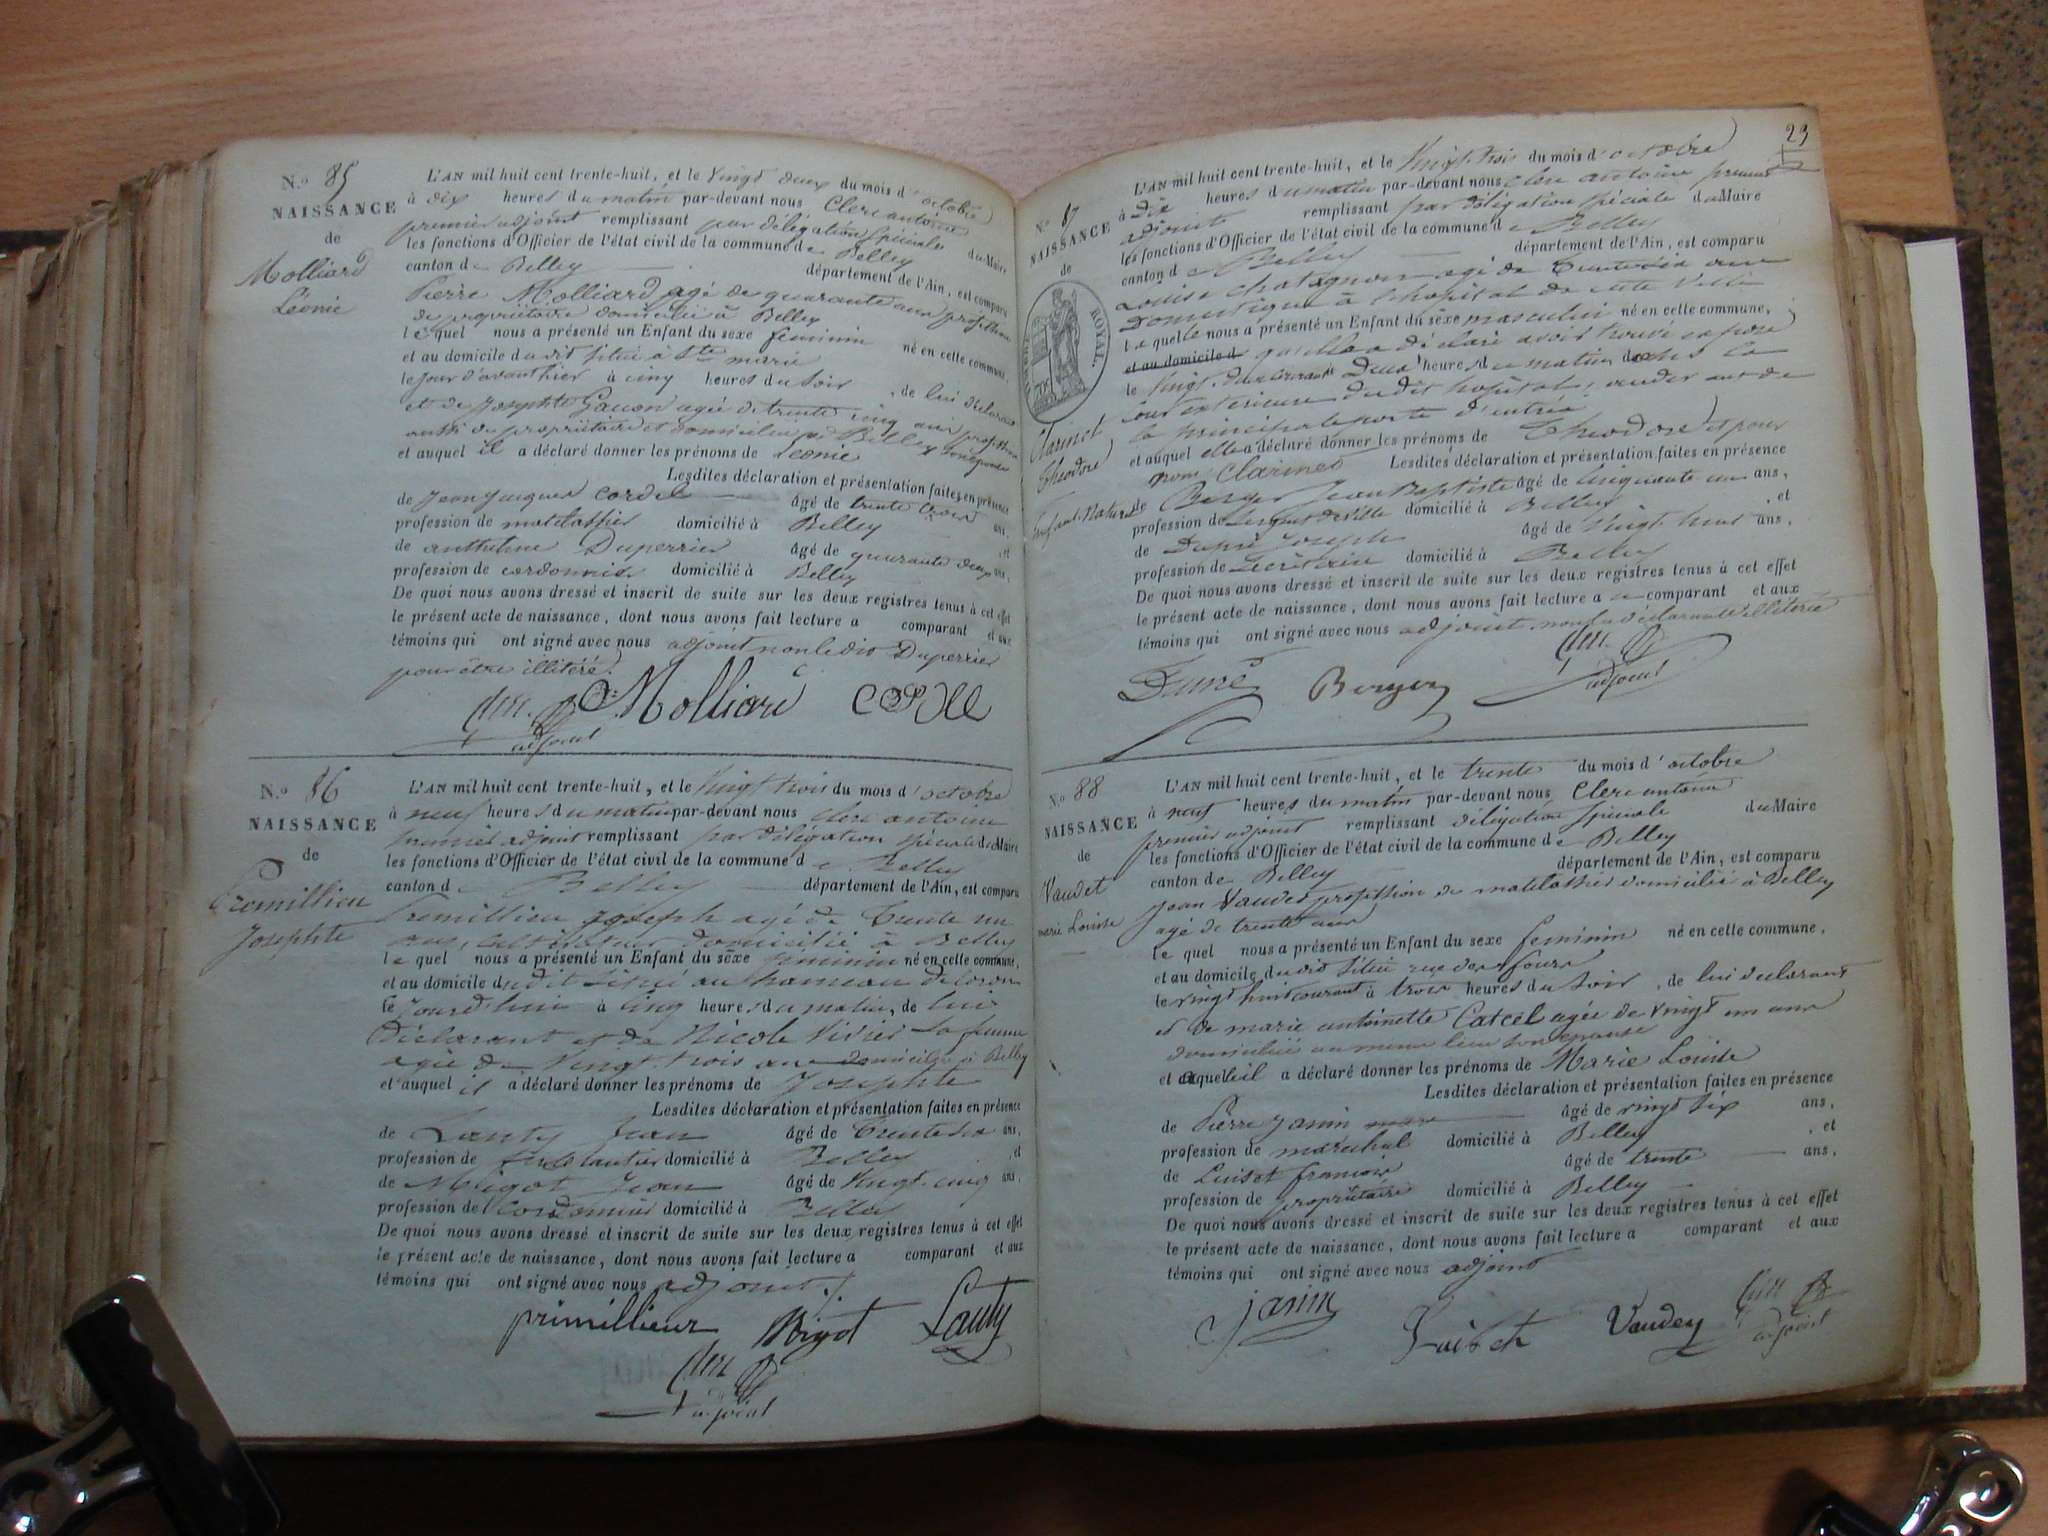 N.o 85
NAISSANCE
de
Molliard
Léonie
L'AN mil huit cent trente-huit, et le vingt deux du mois d'octobre
à dix heures du matin par-devant nous Clerc antoine
premier adjoint remplissant par délégation spéciale du Maire
les fonctions d'Officier de l'état civil de la commune de Belley
canton de Belley département de l'Ain, est comparu
Pierre Molliard agé de quarante ans profession
de propriétaire domicilié à Belley
lequel nous a présenté un Enfant du sexe feminin né en cette commune,
et au domicile dudit situé à Ste marie
le jour d'avant hier à cinq heures du soir, de lui déclarant
et de Josephte agée de trente cinq ans profession
aussi de propriétaire et domiciliée à Belley son épouse
et auquel il a déclaré donner les prénoms de Leonie
Lesdites déclaration et présentation faites en présence
de Jean jacques Cordel âgé de trente trois ans,
profession de matelassier domicilié à Belley, et
de anthelme Duperrier âgé de quarante deux ans,
profession de cordonnier domicilié à Belley
De quoi nous avons dressé et inscrit de suite sur les deux registres tenus à cet effet
le présent acte de naissance, dont nous avons fait lecture a comparant et aux
témoins qui ont signé avec nous adjoint non ledit Duperrier
pour être illitéré.
Clerc adjoint Molliard
N.o 86
NAISSANCE
de
Premillieu
Josephte
L'AN mil huit cent trente-huit, et le vingt trois du mois d'octobre
à neuf heures du matin par-devant nous clerc antoine
premier adjoint remplissant par délégation spéciale du Maire
les fonctions d'Officier de l'état civil de la commune de Belley
canton de Belley département de l'Ain, est comparu
Premillieu Joseph agé de trente un
ans, cultivateur domicilié à Belley
lequel nous a présenté un Enfant du sexe feminin né en cette commune,
et au domicile dudit situé au hameau de
le jourd'hui à cinq heures du matin, de lui
Déclarant et de Nicole Vivier sa femme
agée de Vingt trois ans domiciliée à Belley
et auquel il a déclaré donner les prénoms de Josephte
Lesdites déclaration et présentation faites en présence
de Lauty Jean âgé de ans,
profession de ferblantier domicilié à Belley, et
de Migot Jean âgé de Vingt cinq ans,
profession de Cordonnier domicilié à Belley
De quoi nous avons dressé et inscrit de suite sur les deux registres tenus à cet effet
le présent acte de naissance, dont nous avons fait lecture a comparant et aux
témoins qui ont signé avec nous adjoint./.
primillieux Migot Lauty
Clerc
adjoint
23
N.o 87
NAISSANCE
de
ROYAL.
Clarinet
Théodore
Enfant Naturel
L'AN mil huit cent trente-huit, et le Vingt trois du mois d'octobre
à dix heures du matin par-devant nous clerc antoine premier
adjoint remplissant par délégation spéciale du Maire
les fonctions d'Officier de l'état civil de la commune de Belley
canton de Belley département de l'Ain, est comparu
Louise agée de ans
Domestique à l'hopital de cette Ville
laquelle nous a présenté un Enfant du sexe masculin né en cette commune,
et au domicile d qu'elle a déclaré avoir trouvé exposé
le Vingt deux courant Deux heures du matin dans la
cour exterieure dudit hopital,
la principale porte d'entrée
et auquel elle a déclaré donner les prénoms de Théodore et pour
nom Clarinet Lesdites déclaration et présentation faites en présence
de Berger Jean Baptiste âgé de cinquante un ans,
profession de sergent de Ville domicilié à Belley, et
de Dumé Joseph âgé de Vingt huit ans,
profession de Secrétaire domicilié à Belley
De quoi nous avons dressé et inscrit de suite sur les deux registres tenus à cet effet
le présent acte de naissance, dont nous avons fait lecture a comparant et aux
témoins qui ont signé avec nous adjoint, non la déclarante illitérée
Dumé Berger Clerc adjoint
N.o 88
NAISSANCE
de
Vaudet
marie Louise
L'AN mil huit cent trente-huit, et le trente du mois d'octobre
à neuf heures du matin par-devant nous Clerc antoine
premier adjoint remplissant délégation spéciale du Maire
les fonctions d'Officier de l'état civil de la commune de Belley
canton de Belley département de l'Ain, est comparu
Jean Vaudet profession de matelassier domicilié à Belley
agé de trente ans
lequel nous a présenté un Enfant du sexe feminin né en cette commune,
et au domicile dudit situé rue des fours
le vingt huit courant à trois heures du soir, de lui declarant
et de marie antoinette Catcel agée de vingt un ans
domiciliée au meme lieu son epouse
et auquel il a déclaré donner les prénoms de Marie Louise
Lesdites déclaration et présentation faites en présence
de Pierre Janin âgé de vingt six ans,
profession de marechal domicilié à Belley, et
de Luiset francois âgé de trente ans,
profession de propriétaire domicilié à Belley
De quoi nous avons dressé et inscrit de suite sur les deux registres tenus à cet effet
le présent acte de naissance, dont nous avons fait lecture a comparant et aux
témoins qui ont signé avec nous adjoint
Janin Vaudey Clerc adjoint